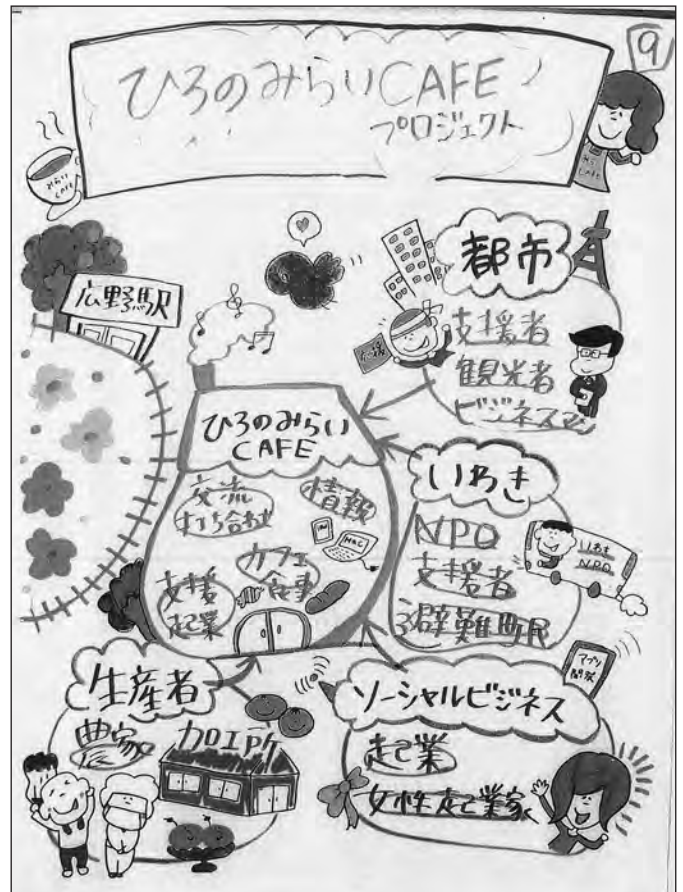 9
ひろのみらいCAFE
プロジェクト
みらい
CAFE
広野駅
都市
応援
支援者
観光者
ビジネスマン
ひろのみらい
CAFE
交流
打ち合わせ
情報
カフェ
食事
支援
起業
いわき
NPO
支援者
避難町民
いわき
NPO
生産者
農家
加工所
ソーシャルビジネス
アプリ
開発
起業
女性起業家